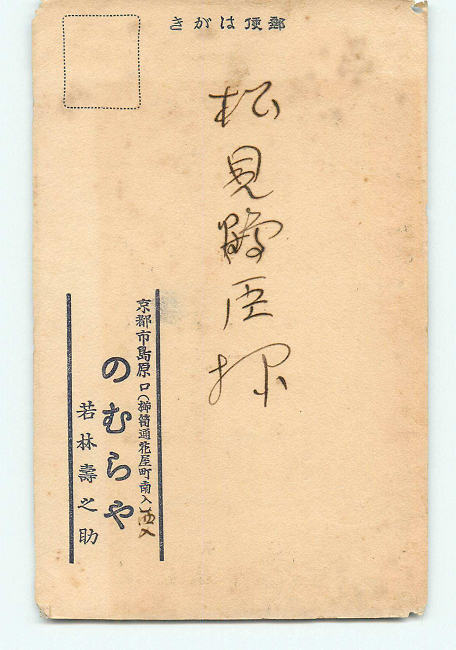 郵便はがき
松見鶴臣様
京都市島原口(櫛笥通花屋町南入西入
のむらや
若林壽之助